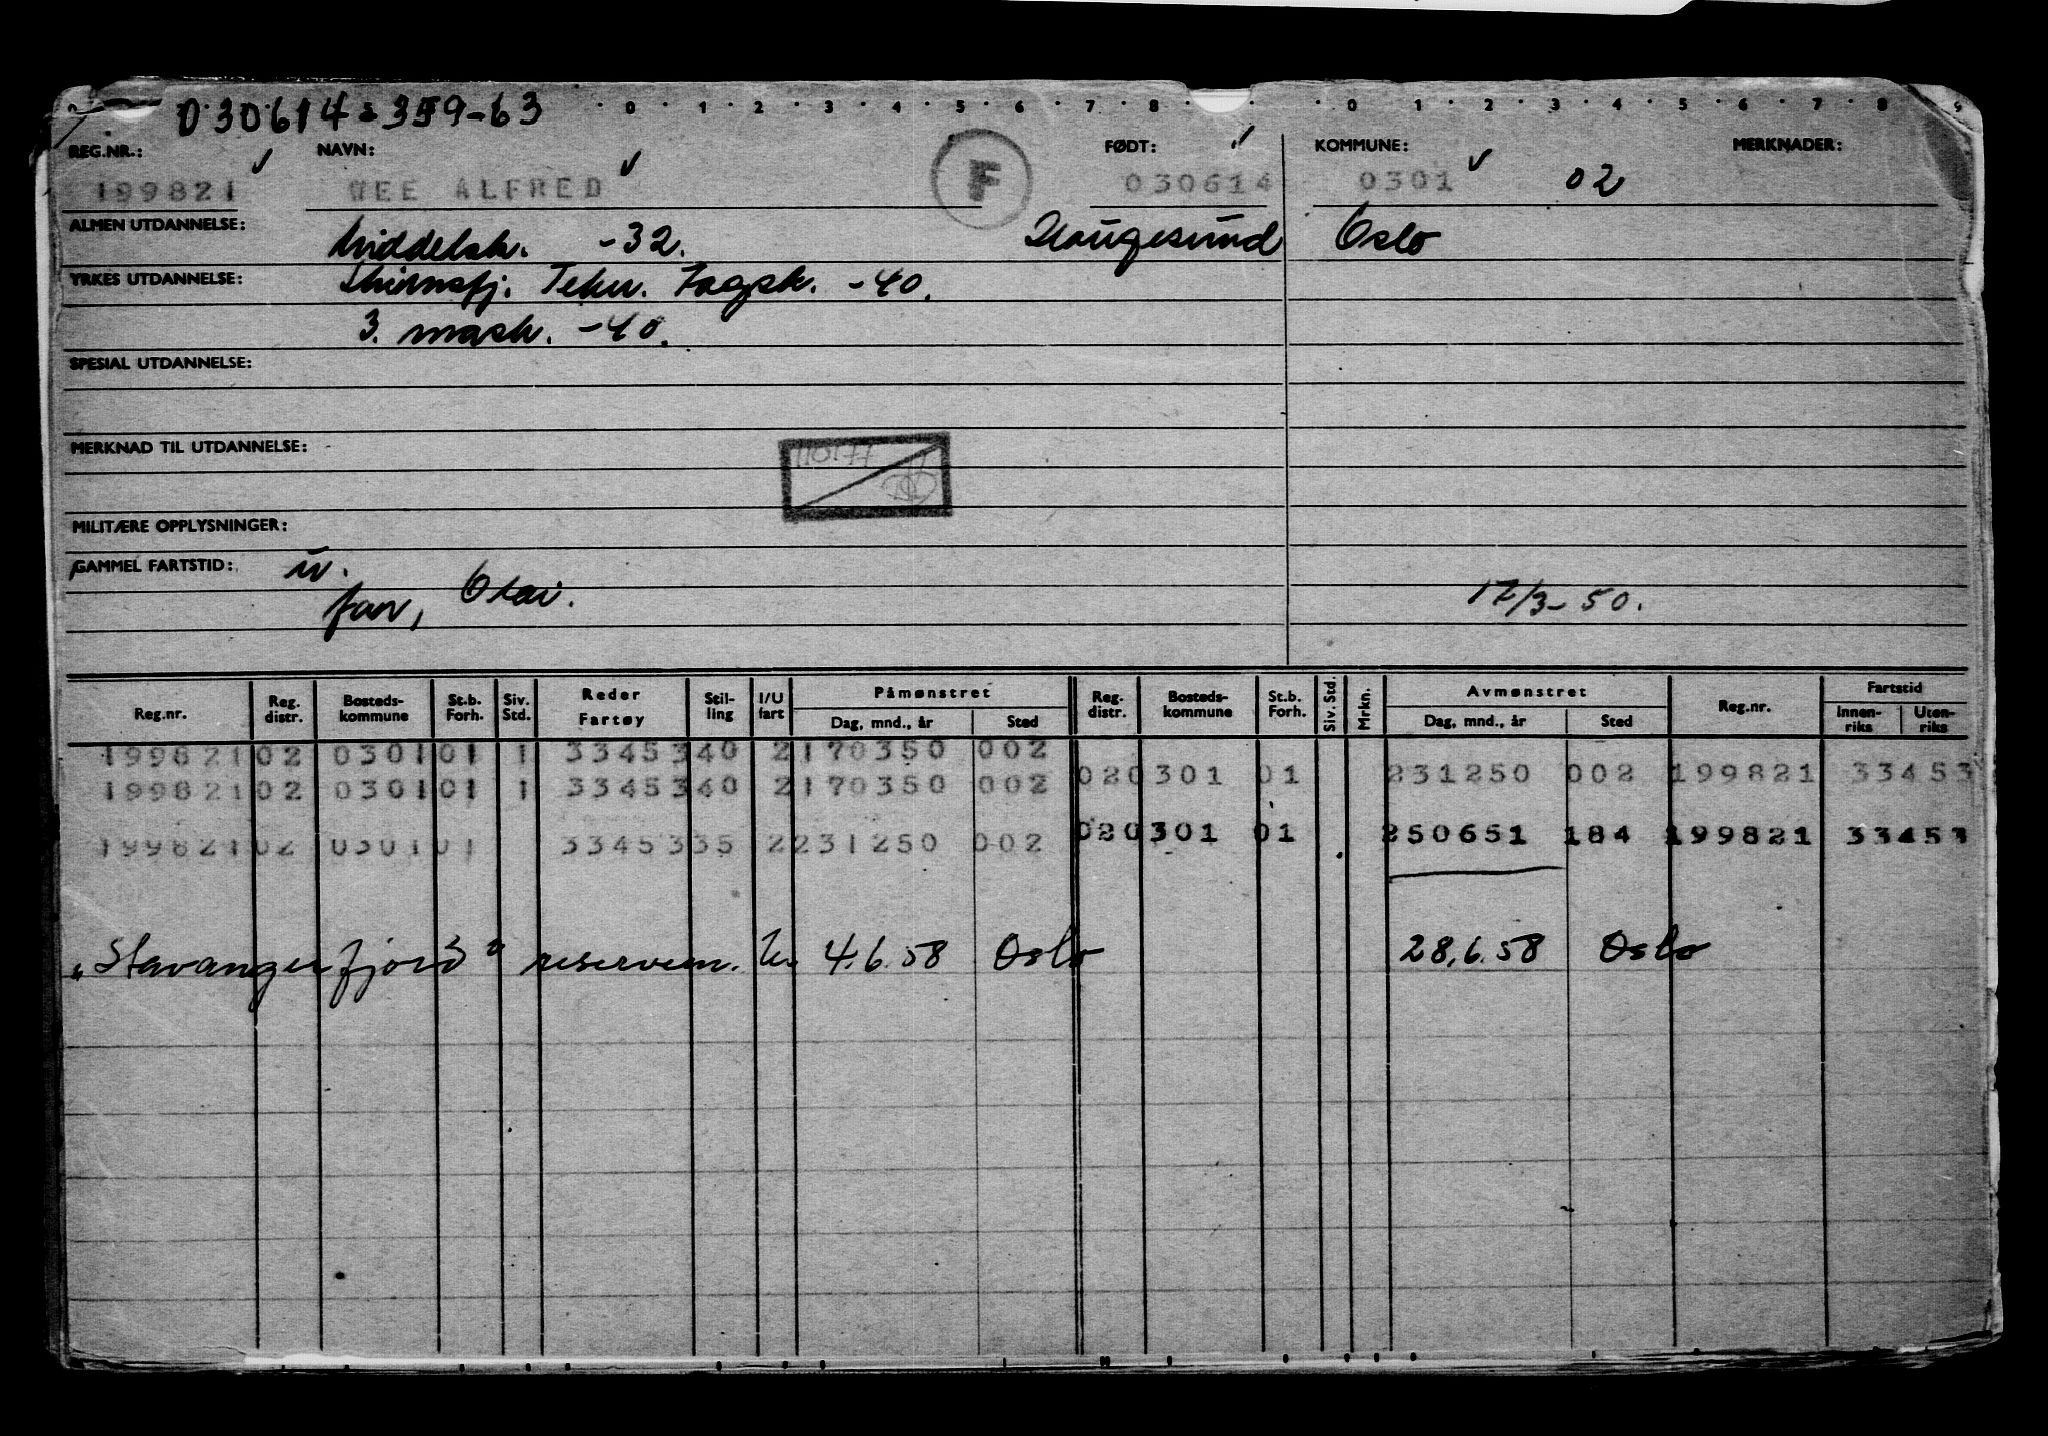 030614 359-63
0 1 2 3 4 5 6 7 8 0 1 2 3 4 5 6 7 8 9
REG.NR.: NAVN: FØDT: KOMMUNE: MERKNADER:
199821 WEE ALFRED F 030614 0301 02
ALMEN UTDANNELSE: Middelsk. -32. Haugesund Oslo
YRKES UTDANNELSE: Tekn. Fagsk. -40.
3. mask. -40.
SPESIAL UTDANNELSE:
MERKNAD TIL UTDANNELSE:
MILITÆRE OPPLYSNINGER:
GAMMEL FARTSTID: u.
far, Olai. 17/3-50.
Reg.nr. Reg. distr. Bosteds-kommune St.b. Forh. Siv. Std. Reder Fartøy Stil-ling I/U fart Påmønstret Dag, mnd., år Sted Reg. distr. Bosteds-kommune St.b. Forh. Siv. Std. Mrkn. Avmønstret Dag, mnd., år Sted Reg.nr. Fartstid Innen-riks Uten-riks
199821 02 0301 01 1 33453 40 2 170350 002
199821 02 0301 01 1 33453 40 2 170350 002 02 0301 01 231250 002 199821 33453
199821 02 0301 01 33453 35 2 231250 002 02 0301 01 250651 184 199821 33453
"Stavangerfjord" reservem. U. 4.6.58 Oslo 28.6.58 Oslo